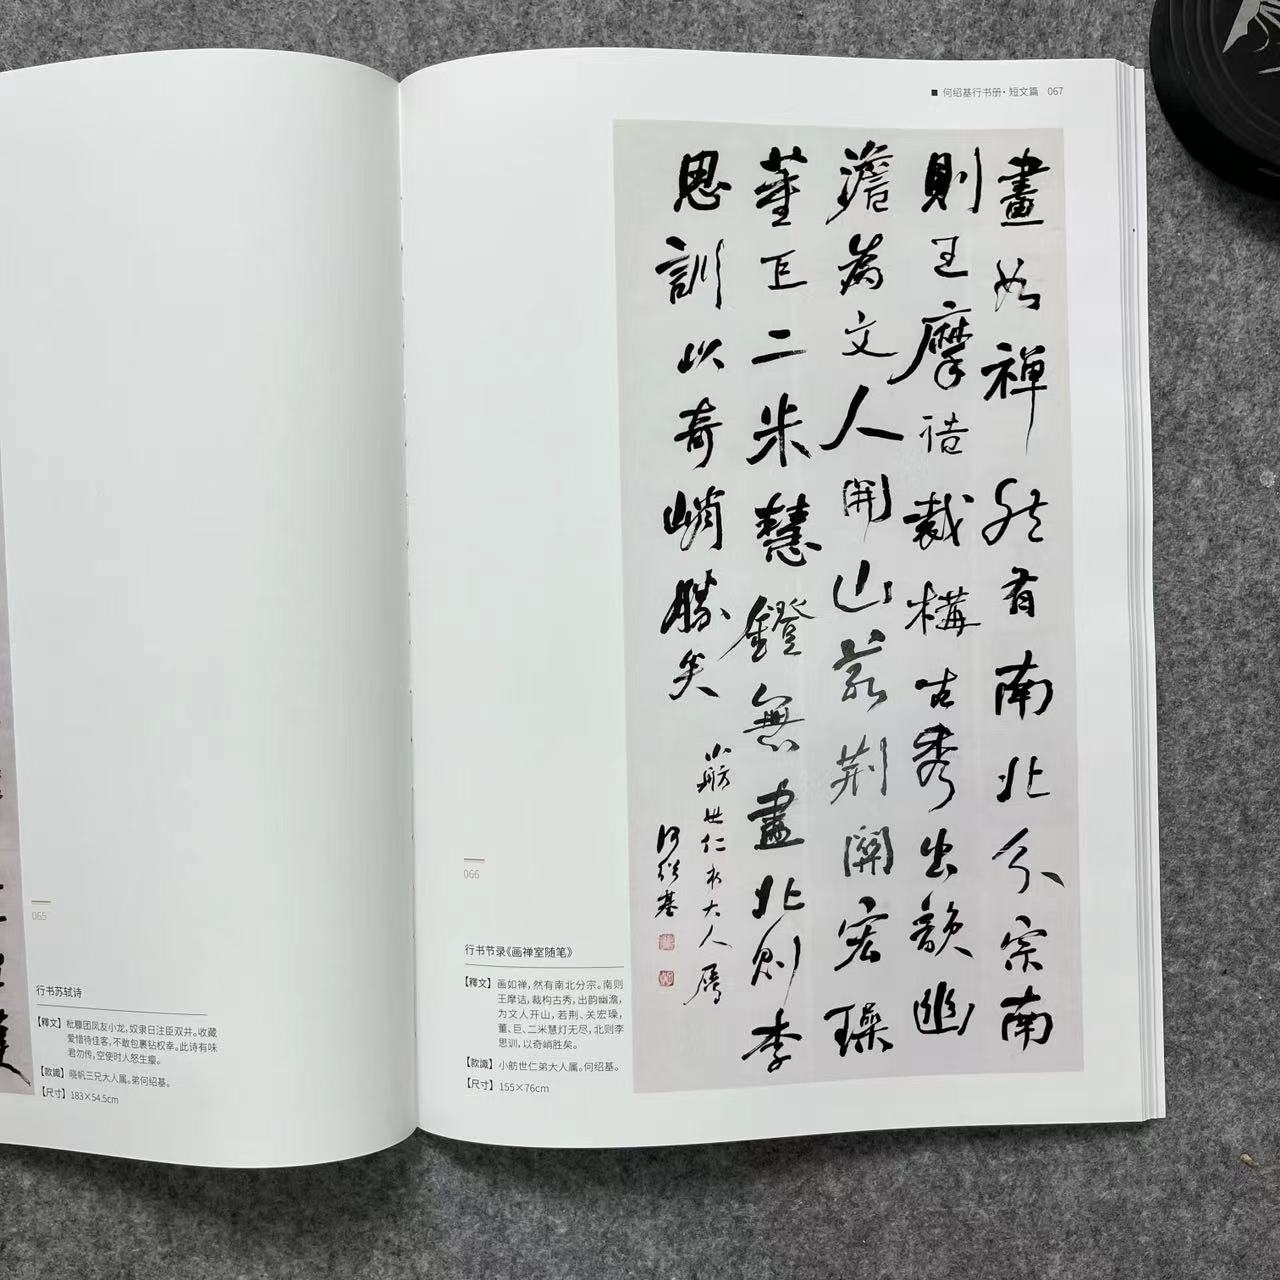 何绍基行书册·短文篇 067
畫如禅然有南北分宗南
則王摩诘裁構古秀出韻幽
澹為文人開山若荆關宏璪
董巨二米慧鐙無盡北則李
思訓以奇峭勝矣
小舫世仁弟大人属
何绍基
066
行书节录《画禅室随笔》
【释文】画如禅，然有南北分宗。南则
王摩诘，裁构古秀，出韵幽澹，
为文人开山，若荆、关宏璪，
董、巨、二米慧灯无尽，北则李
思训，以奇峭胜矣。
【款識】小舫世仁弟大人属。何绍基。
【尺寸】155×76cm
065
行书苏轼诗
【釋文】枇穆团凤友小龙，奴隶日注臣双井。收藏
爱惜待佳客，不敢包裹钻权幸。此诗有味
君勿传，空使时人怒生瘿。
【款識】晓帆三兄大人属。弟何绍基。
【尺寸】183×54.5cm